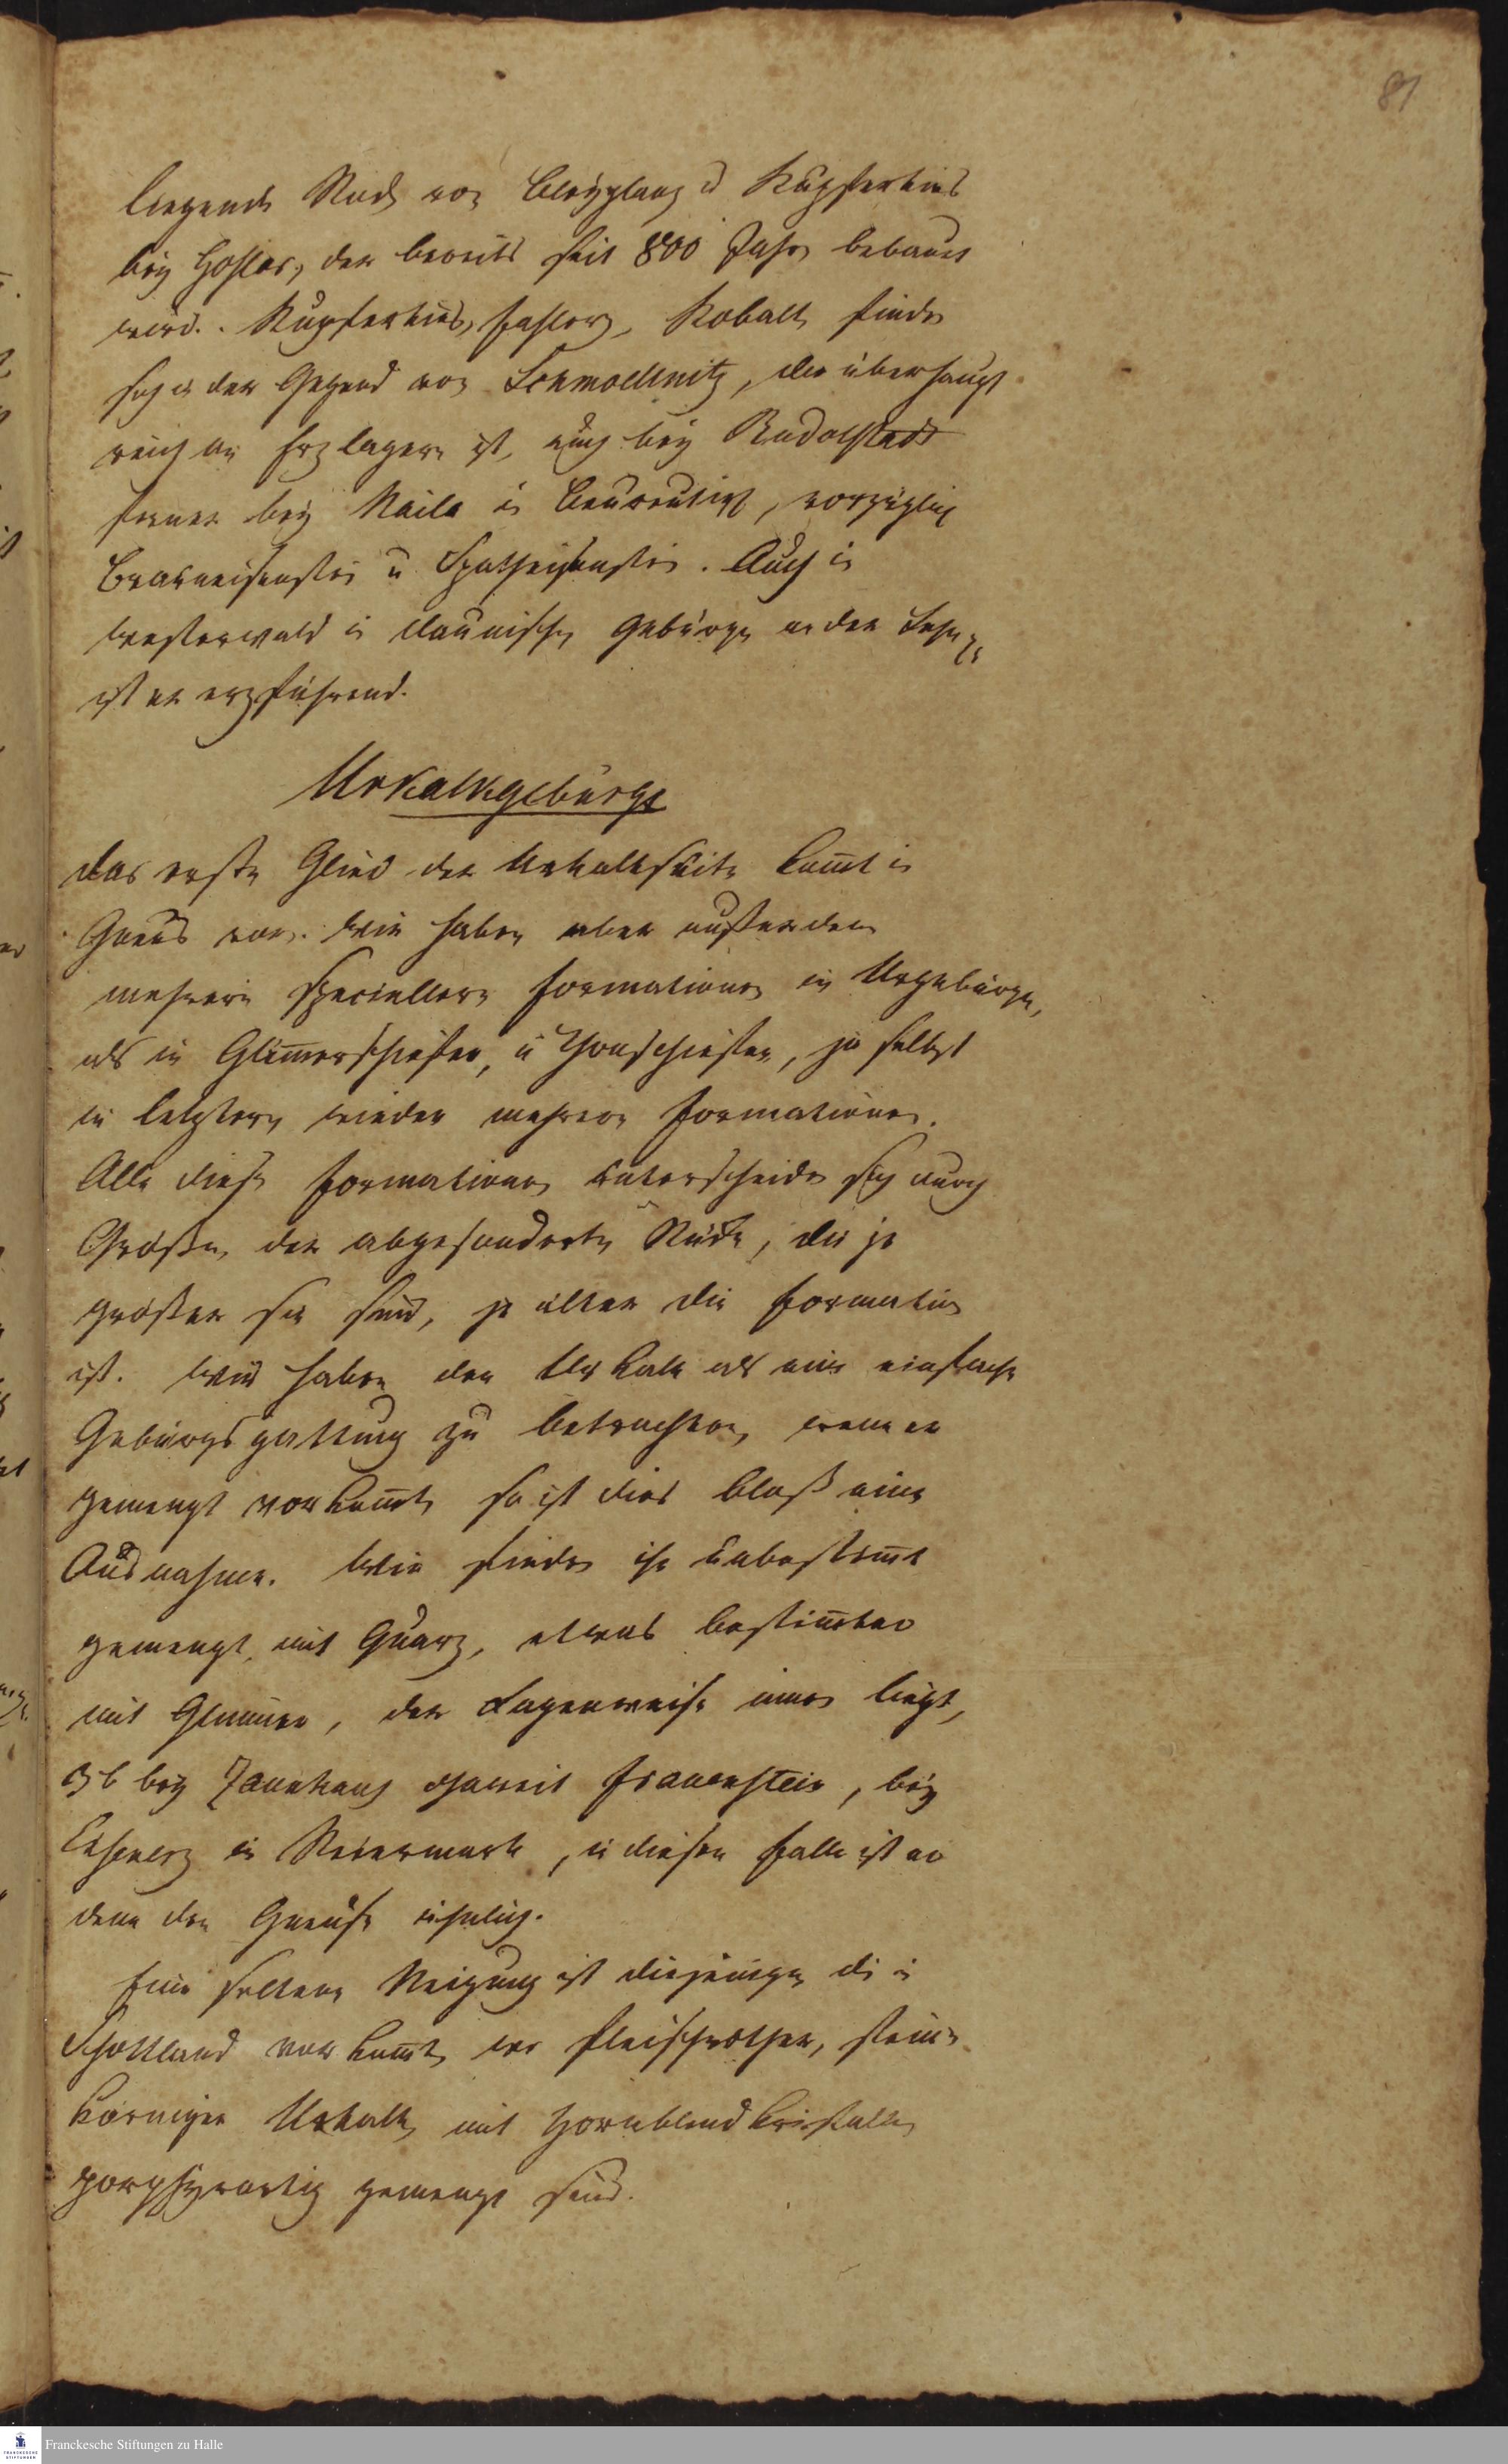 81
liegende Stock von Bleyglanz u Kupferkies
bey Goslar, der bereits seit 800 Jahr bebauet
wird. Kupferkies, Fahlerz, Kobalt finden
sich in der Gegend von Schmoellnitz, die überhaupt
reich an Erzlagern ist, auch bey Rudolstadt
ferner bey Naila in Beureuthischen, vorzüglich
Brauneisenstein u Spatheisenstein. Auch in
Westerwald in Gebürge an der Lahn
ist er erzführend.
Urkalkgebürge
das erste Glied der Urkalksuite kom̅t in
Gneus vor. Wir haben aber außerdem
mehrere speciellere Formationen in Urgebürge,
als in Glim̅erschiefer, u Thonschiefer, ja selbst
in letztern wieder mehrere Formationen.
Alle diese Formationen unterscheiden sich durch
Größe, der abgesonderten Stücke, die je
größer sie sind, je älter die Formation
ist. Wir haben den Urkalk als eine einfache
Gebürgsgattung zu betrachten, wenn er
gemengt vorkom̅t, so ist dies bloß eine
Ausnahme. Wir finden ihn unbestim̅t
gemengt mit Quarz, etwas bestim̅ter
mit Glimmer, der Lagenweise innen liegt,
z b bey Zaunhaus ohnweit Frauenstein, bey
Eisenerz in Steiermark, in diesen Falle ist er
denn den Gneuse ähnlich.
Eine seltene Mengung ist diejenige die in
Schottland vorkom̅t, wo fleischrother,
körniger Urkalk mit Hornblendkristallen
porphyrartig gemengt sind.
Franckesche Stiftungen zu Halle